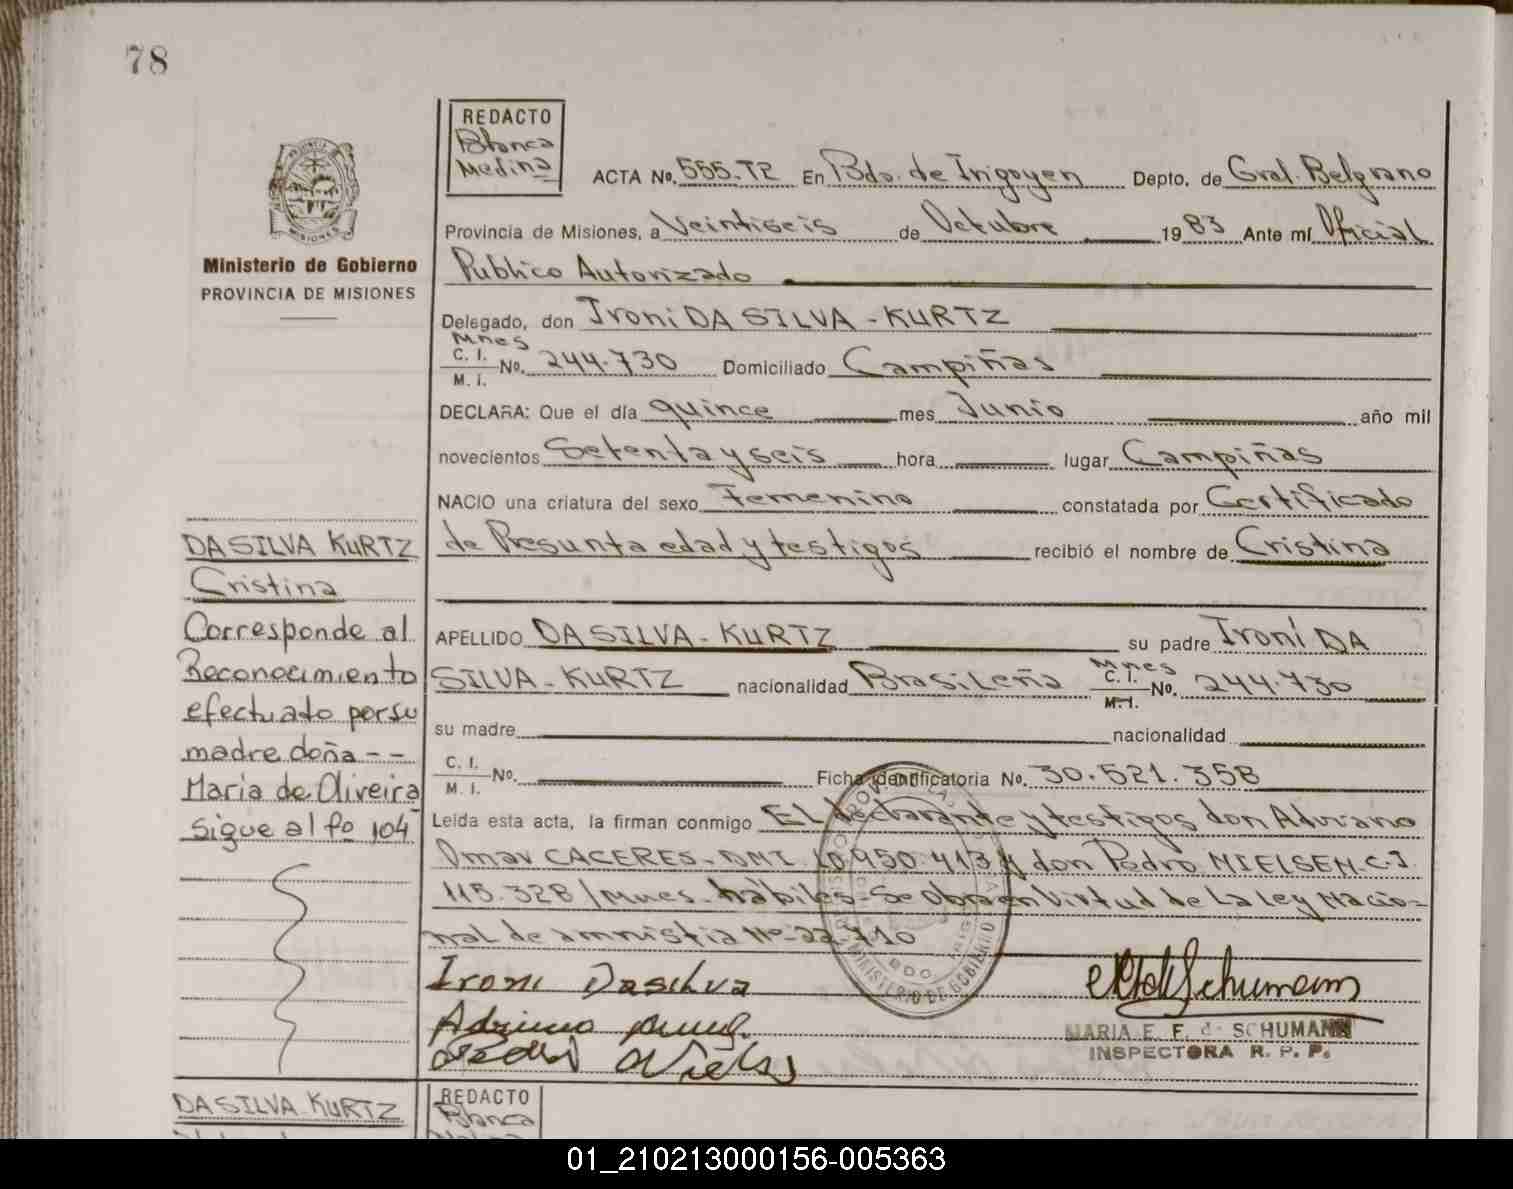 78
REDACTO
Blanca
Medina
ACTA No. 555-T2 En Bdo. de Irigoyen Depto. de Gral. Belgrano
Provincia de Misiones, a Veintiseis de Octubre 1983 Ante mí Oficial
Publico Autorizado
Delegado, don Ironi DA SILVA - KURTZ
Mnes
C. I.
M. I.
No. 244.730 Domiciliado Campiñas
DECLARA: Que el día quince mes Junio año mil
novecientos Setenta y seis hora lugar Campiñas
NACIO una criatura del sexo Femenino constatada por Certificado
de Presunta edad y testigos recibió el nombre de Cristina
APELLIDO DA SILVA - KURTZ su padre Ironi DA
SILVA - KURTZ nacionalidad Brasileña Mnes C. I. M. I. No. 244.730
su madre nacionalidad
C. I.
M. I.
No. Ficha identificatoria No. 30.521.358
Leída esta acta, la firman conmigo EL declarante y testigos don Adriano
Omar CACERES - DNI 10.950.413 y don Pedro NIELSEN. C.I.
115.328/Mnes. habiles - Se obra en Virtud de La Ley Nacio-
nal de amnistia Nº 22.710
Ironi Dasilva
MARIA E. F. de SCHUMANN
INSPECTORA R. P. P.
PROVINCIA
MISIONES
Ministerio de Gobierno
PROVINCIA DE MISIONES
DA SILVA KURTZ
Cristina
Corresponde al
Reconocimiento
efectuado por su
madre doña - -
Maria de Oliveira
sigue al fo 104
MINISTERIO DE GOBIERNO
DA SILVA - KURTZ
REDACTO
Blanca
01_210213000156-005363